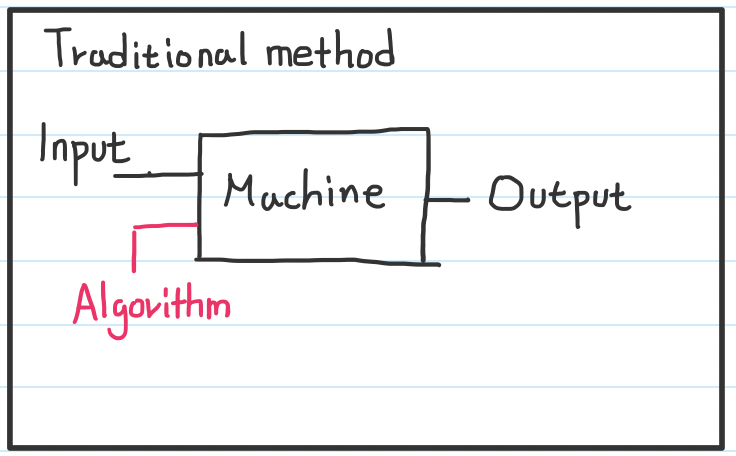 Traditional method
Input
Machine
Output
Algorithm